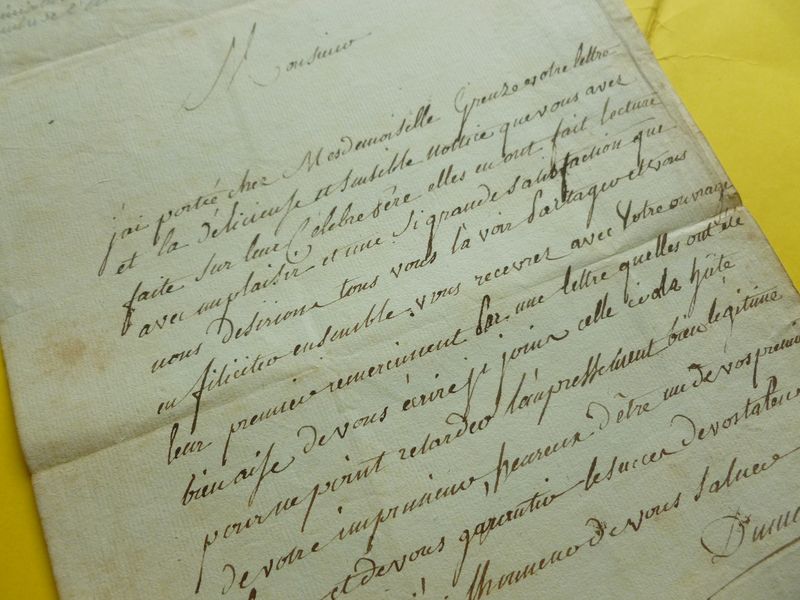 Monsieur
j'ai portée chez Mesdemoiselle Greuze votre lettre
et la délicieuse et sensible nottice que vous avez
faite sur leur Célèbre Père elles en ont fait lecture
avec un plaisir et une si grande satisfaction que
nous desirions tous vous la voir Partager et vous
en féliciter ensemble. vous recevrez avec Votre ouvrage
leur premier remerciment Par une lettre quelles ont été
bien aise de vous écrire j'i joins celle ci de hâte
pour ne point retarder l'empressement bien légitime
de votre imprimeur, heureux d'être un de vos premie
et de vous garantir le succes de vos talens
l'honneur de vous saluer